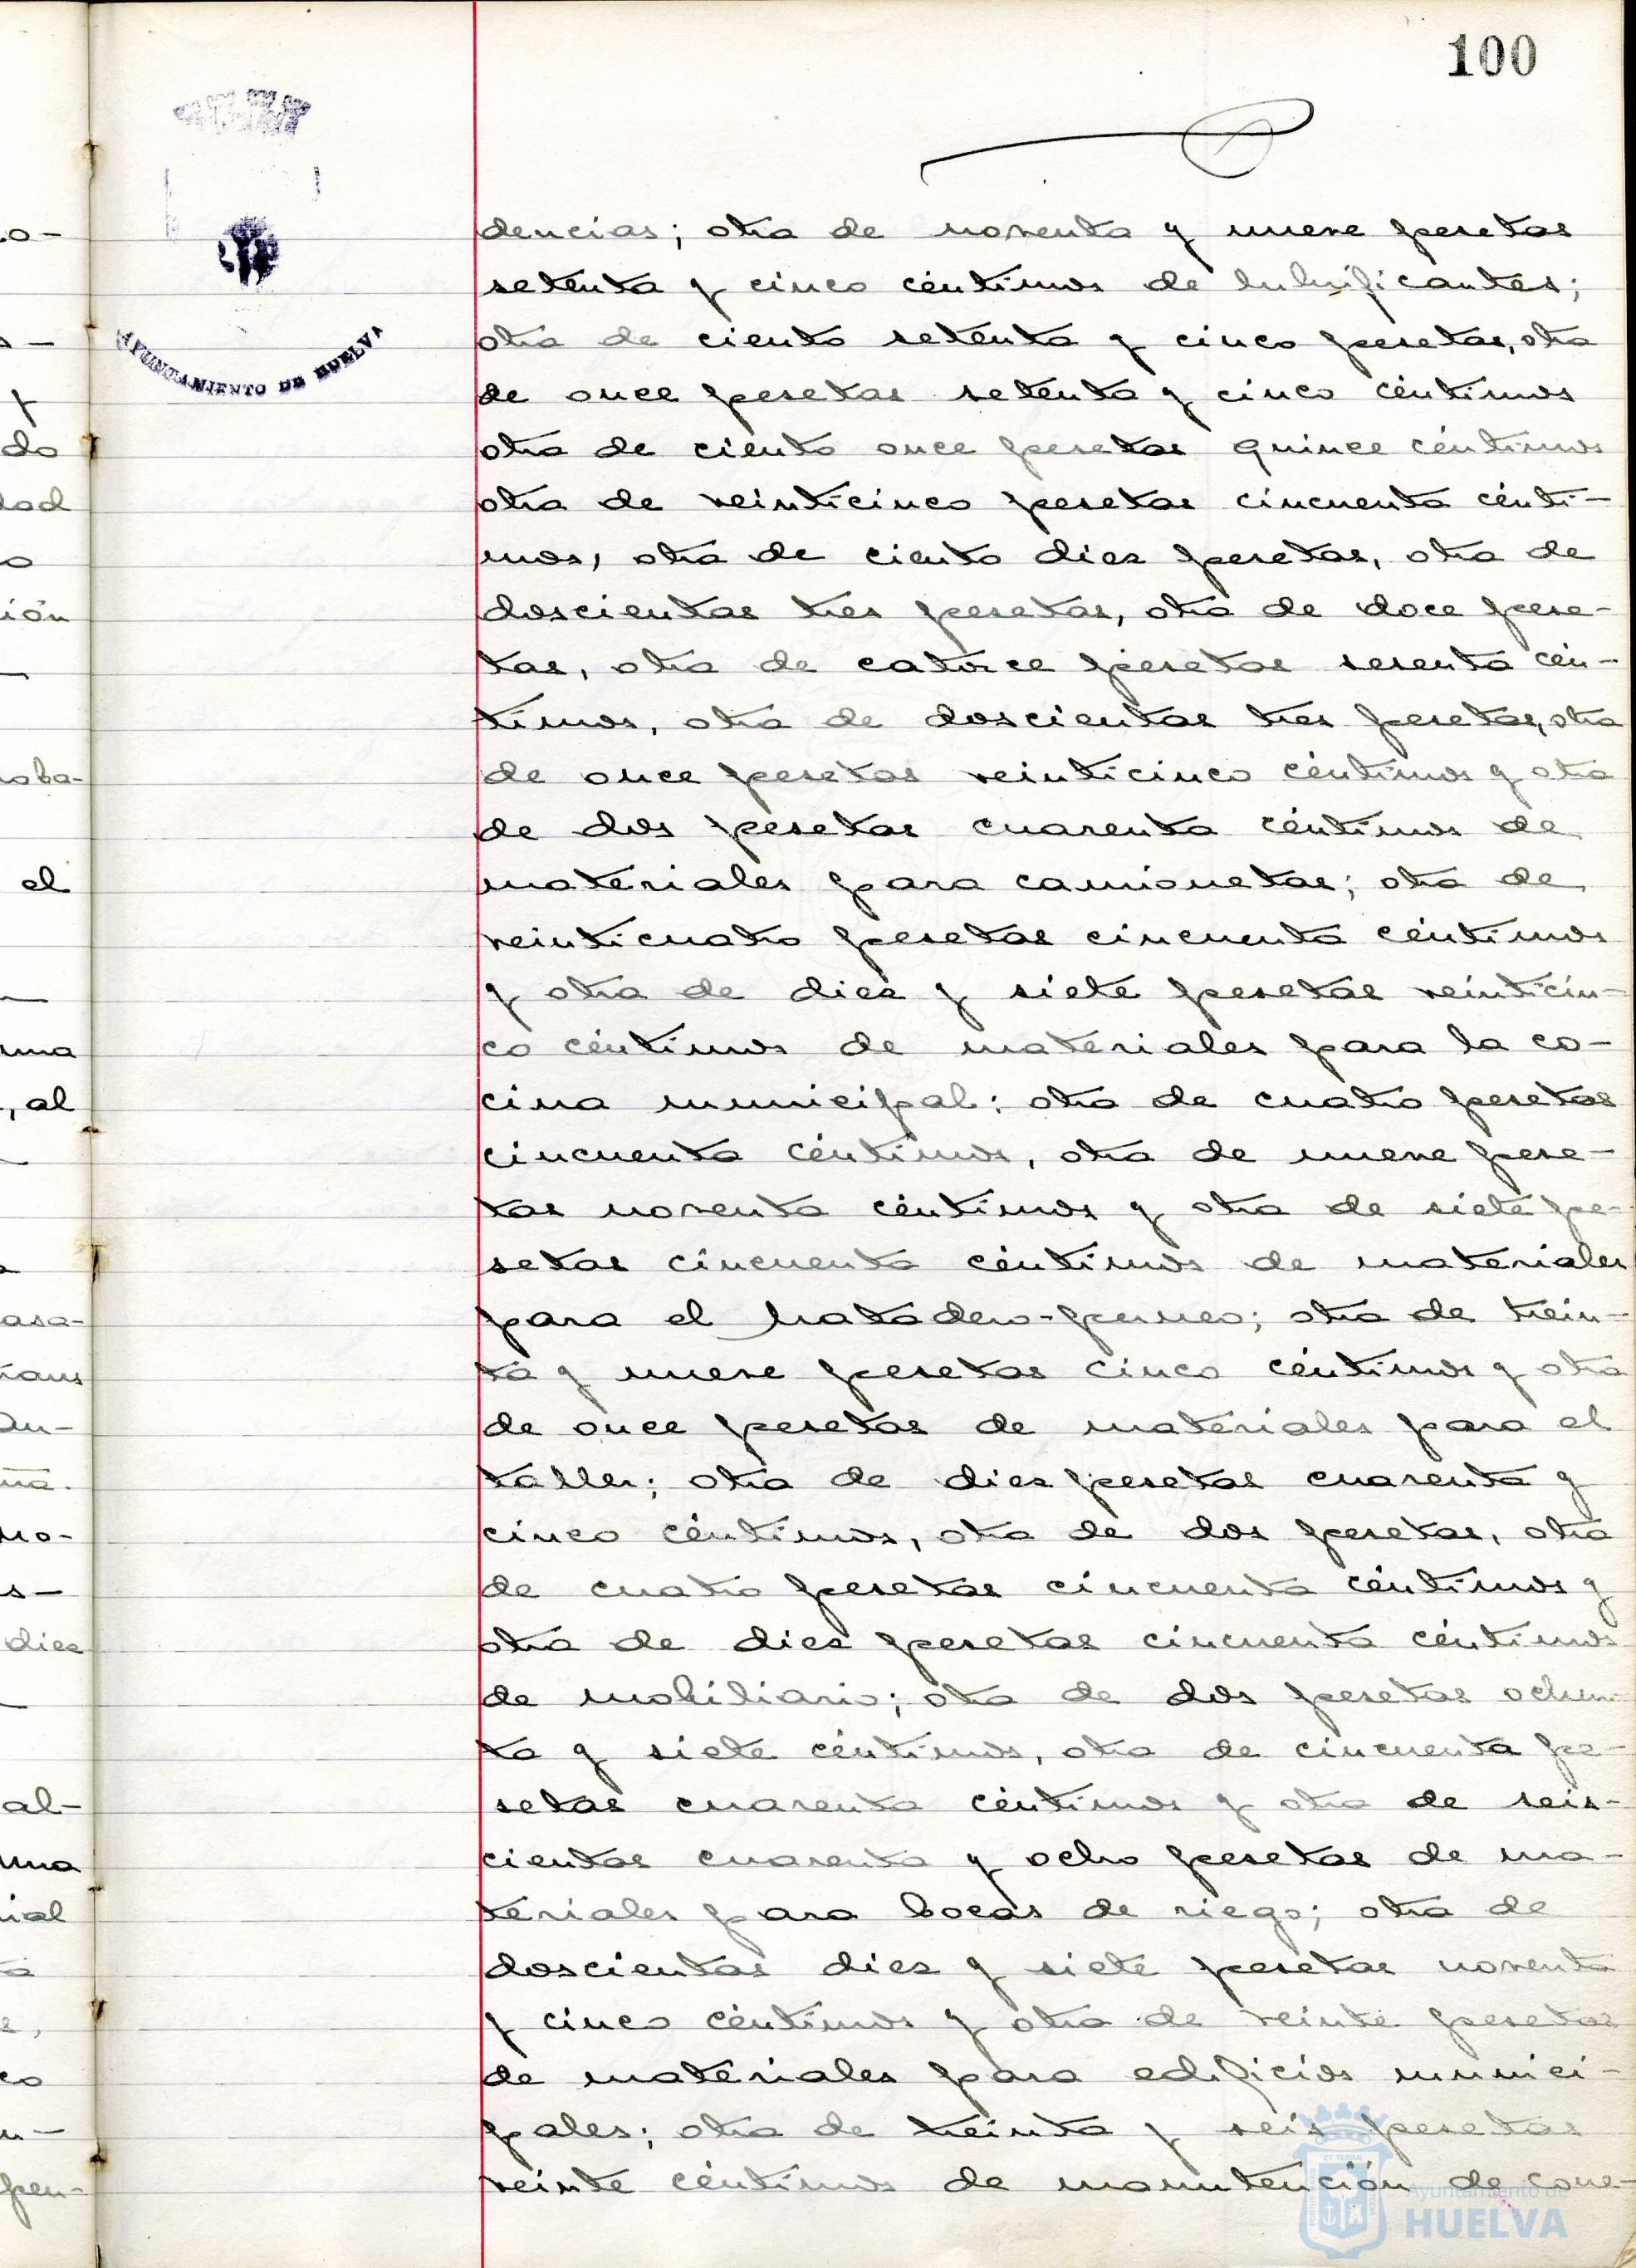 100
AYUNTAMIENTO DE HUELVA
dencias; otra de noventa y nueve pesetas
setenta y cinco céntimos de lubrificantes;
otra de ciento setenta y cinco pesetas, otra
de once pesetas setenta y cinco céntimos
otra de ciento once pesetas quince céntimos
otra de veinticinco pesetas cincuenta cénti-
mos, otra de ciento diez pesetas, otra de
doscientas tres pesetas, otra de doce pese-
tas, otra de catorce pesetas sesenta cén-
timos, otra de doscientas tres pesetas, otra
de once pesetas veinticinco céntimos y otra
de dos pesetas cuarenta céntimos de
materiales para camionetas; otra de
veinticuatro pesetas cincuenta céntimos
y otra de diez y siete pesetas veinticin-
co céntimos de materiales para la co-
cina municipal; otra de cuatro pesetas
cincuenta céntimos, otra de nueve pese-
tas noventa céntimos y otra de siete pe-
setas cincuenta céntimos de materiales
para el Matadero-perreo; otra de trein-
ta y nueve pesetas cinco céntimos y otra
de once pesetas de materiales para el
taller; otra de diez pesetas cuarenta y
cinco céntimos, otra de dos pesetas, otra
de cuatro pesetas cincuenta céntimos y
otra de diez pesetas cincuenta céntimos
de mobiliario; otra de dos pesetas ochen-
ta y siete céntimos, otra de cincuenta pe-
setas cuarenta céntimos y otra de seis-
cientas cuarenta y ocho pesetas de ma-
teriales para bocas de riego; otra de
doscientas diez y siete pesetas noventa
y cinco céntimos y otra de veinte pesetas
de materiales para edificios munici-
pales; otra de treinta y seis pesetas
veinte céntimos de manutención de
Ayuntamiento de
HUELVA